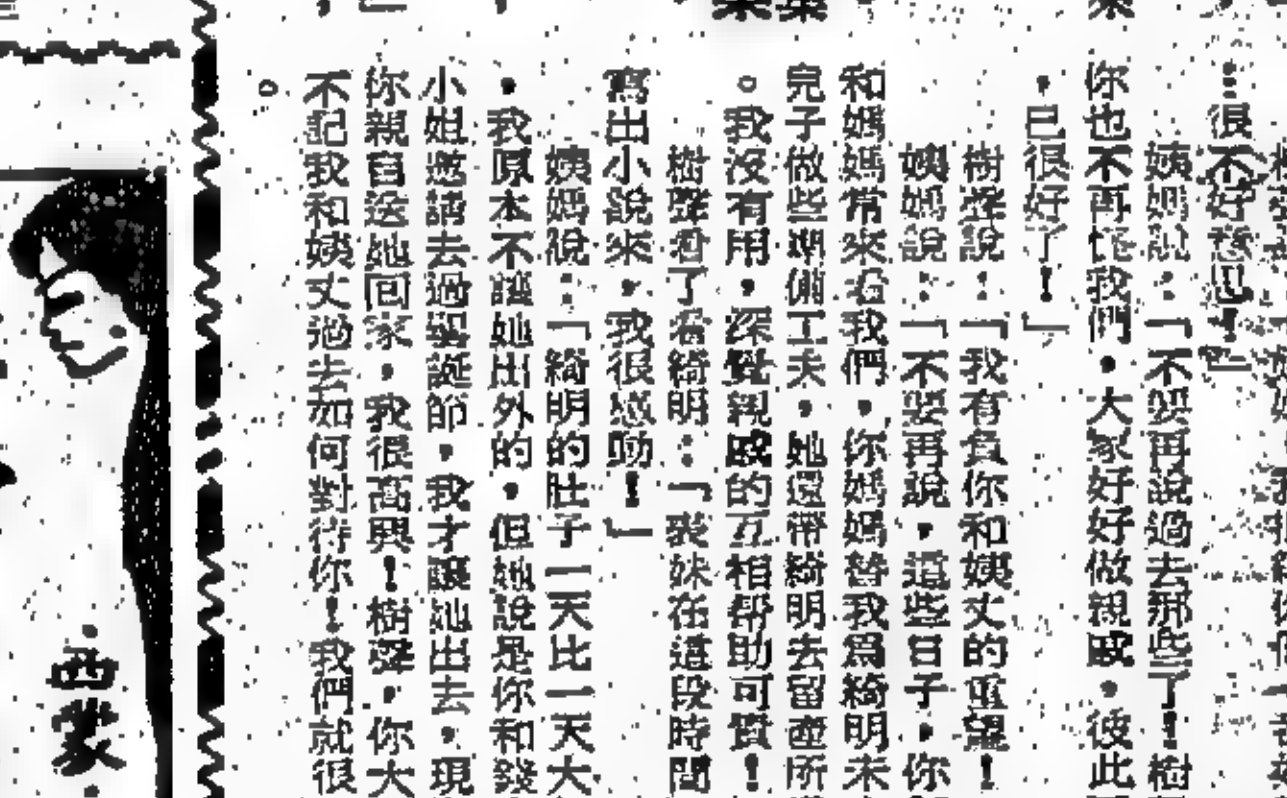 …很不好意思！」
姨媽說：「不要再說過去那些了！樹
你也不再怪我們，大家好好做親戚，彼此
，已很好了！」
樹聲說：「我有負你和姨丈的重望！
姨媽說：「不要再說，這些日子，你
和媽媽常來看我們，你媽媽替我為綺明未
兒子做些準備工夫，她還帶綺明去留產所
。我沒有用，深覺親戚的互相帮助可貴！
樹聲看了看綺明：「表妹在這段時間
寫出小說來，我很感動！」
姨媽說：「綺明的肚子一天比一天大
，我原本不讓她出外的，但她說是你和錢
小姐邀請去過聖誕節，我才讓她出去，現
你親自送她回家，我很高興！樹聲，你大
不記我和姨丈過去如何對待你！我們就很
。
西蒙